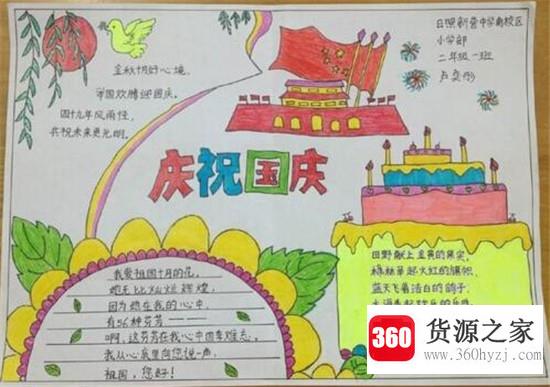 金秋十月好心境,
举国欢腾迎国庆。
四十九年风雨恒,
共祝未来更光明。
日照新营中学南校区
小学部
二年级一班
庆祝国庆
我爱祖国十月的花,
她无比灿烂辉煌,
因为栽在我的心中,
有56种芬芳
啊,这芬芳在我心中困难忘。
我从心底里向您说一声,
祖国,您好!
田野献上金黄的果实,
绿林举起火红的旗帜,
蓝天飞着洁白的鸽子,
360
货源之家
www.360hyzj.com